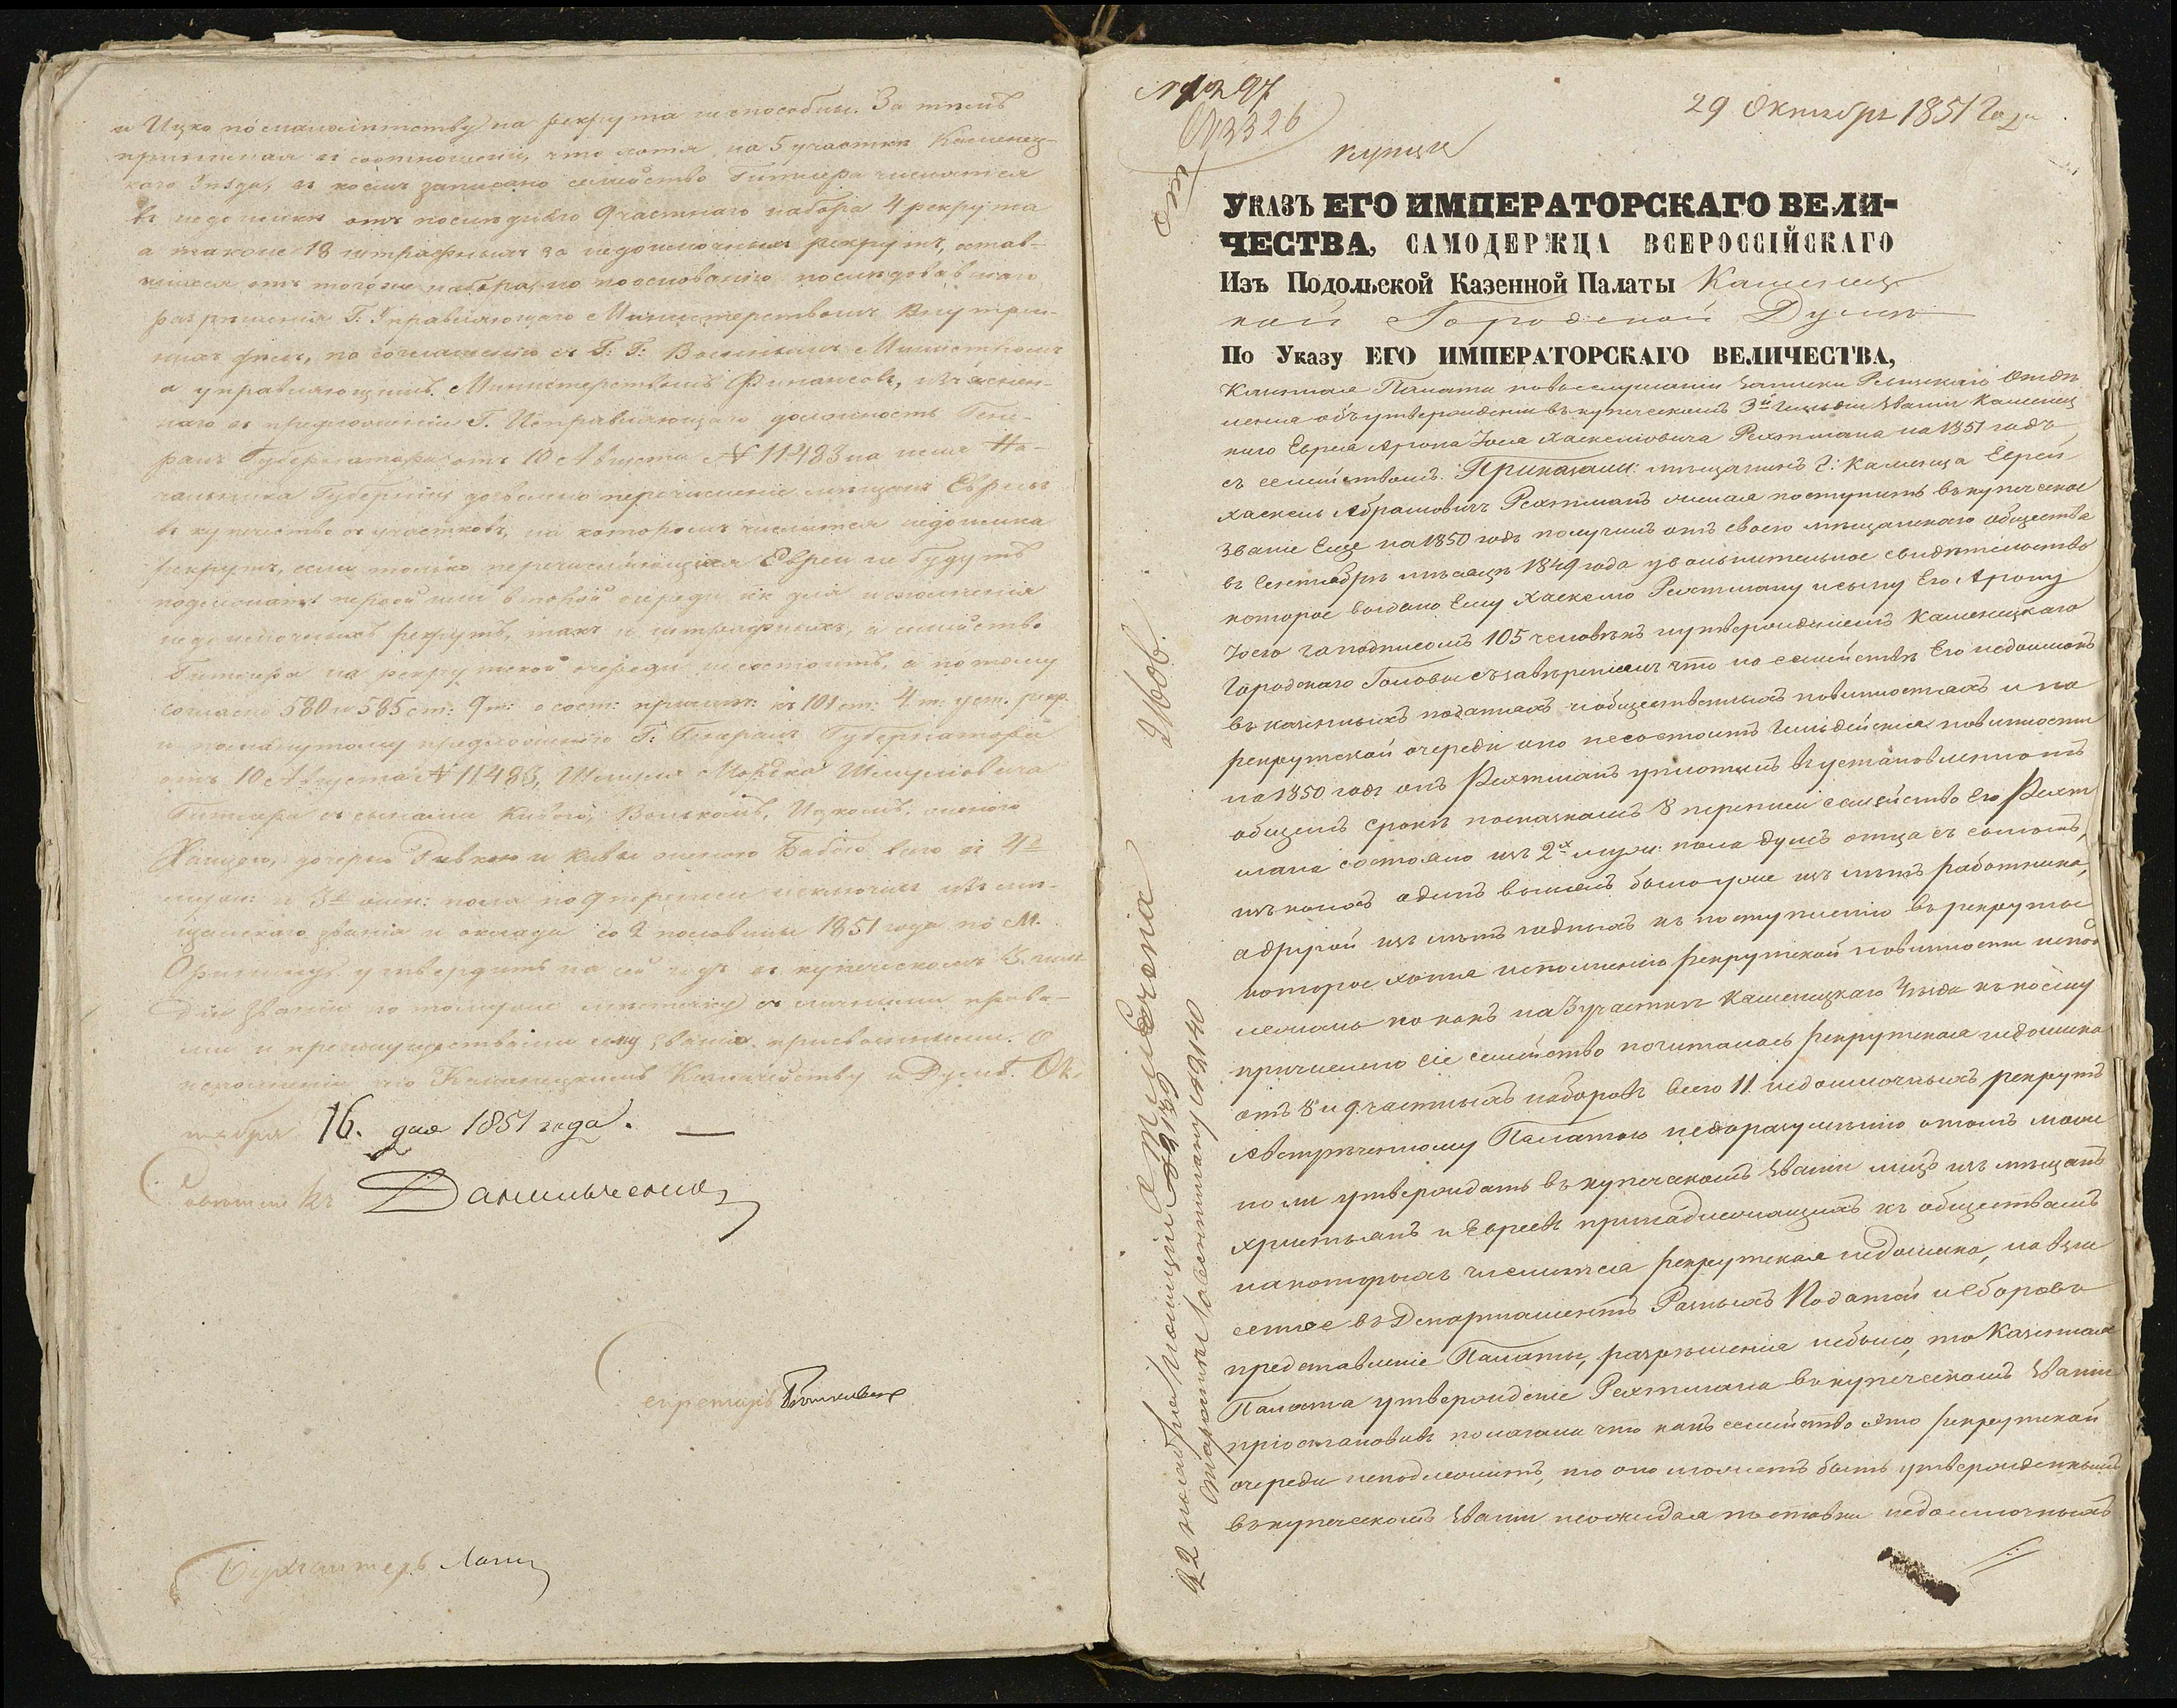 и Ицко по малолетству) на рекрута неспособны. За тѣмъ
принимая въ соотношеніи, что хотя на 5 участкѣ Каменец-
каго Уѣзда, въ коемъ записано семейство Гитлера числится
въ недоимкѣ отъ послѣдняго 9 частнаго набора 4 рекрута
а также 18 штрафныхъ за недоимочныхъ рекрутъ, остав-
шихся отъ того же набора, но по основанію послѣдовавшаго
разрѣшенія Г. Управляющаго Министерствомъ Внутрен-
нихъ дѣлъ, по соглашенію съ Г: Г: Военнымъ Министромъ
и управляющимъ Министерствомъ Финансовъ, изъяснен-
наго въ предложеніи Г. Исправляющаго должность Гене-
ралъ Губернатора отъ 10 Августа № 11483 на имя На-
чальника Губерніи, дозволено перечисленіе мѣщанъ Евреевъ
въ купечество съ участковъ, на которомъ числится недоимка
рекрутъ, если только перечисляющіеся Евреи не будутъ
подлежать первой или второй очереди къ для исполненія
недоимочныхъ рекрутъ, такъ и штрафныхъ, а семейство
Гитлера на рекрутской очереди не состоитъ, а потому
согласно 580 и 585 ст: 9 т: о сост: примѣч: къ 101 ст: 4 т: уст. рекр.
и помянутому предложенію Г: Генералъ Губернатора
отъ 10 Августа № 11483, Шмуля Мордка Шмулевича
Гитлера съ сынами Кивою, Волькомъ, Ицкомъ, женою
Ханцею, дочерью Ривкою и Кивы женою Бабою всего въ 4х
муж: и 3х жен: пола по 9 ревизіи исключивъ изъ мѣ-
щанскаго званія и оклада со 2 половины 1851 года по М.
Орынину утвердить на сей годъ въ купеческомъ 3. гиль-
діи званіи по тому же мѣстечку съ личными права-
ми и преимуществами сему званію присвоенными. О
исполненіи чего Каменецкимъ Казначейству и Думѣ. Ок-
тября 16. дня 1851 года.
Совѣтникъ Данильченко
Секретарь
Бухгалтеръ
№ 1297
№ 3326
29 Октября 1851 года
купцы
УКАЗЪ ЕГО ИМПЕРАТОРСКАГО ВЕЛИ-
ЧЕСТВА, САМОДЕРЖЦА ВСЕРОССІЙСКАГО
Изъ Подольской Казенной Палаты Каменец
кой Городской Думѣ
По Указу ЕГО ИМПЕРАТОРСКАГО ВЕЛИЧЕСТВА,
Казенная Палата по выслушаніи записки Ревизскаго Отдѣ
ленія объ утвержденіи въ купеческомъ 3й гильдіи званіи Каменец
каго Еврея Арона Іося Хаскелевича Рехтмана на 1851 годъ
съ семействомъ. Приказали: мѣщанинъ г: Каменца Еврей
Хаскель Абрамовичъ Рехтманъ желая поступить въ купеческое
званіе еще на 1850 годъ получилъ отъ своего мѣщанскаго общества
въ Сентябрѣ мѣсяцѣ 1849 года увольнительное свидѣтельство
которое выдано ему Хаскелю Рехтману и сыну его Арону
Іосю за подписомъ 105 человѣкъ и утвержденіемъ Каменецкаго
Городскаго Головы съ завѣреніемъ что по семейству его недоимокъ
въ казенныхъ податяхъ и общественныхъ повинностяхъ и на
рекрутской очереди оно не состоитъ Гильдейскія повинности
на 1850 годъ онъ Рехтманъ уплотилъ въ установленномъ
общемъ срокѣ по сказкамъ 8 переписи семейство его Рехт
мана состояло изъ 2х муж: пола душъ отца съ сыномъ,
изъ коихъ одинъ вышелъ было уже изъ лѣтъ работника,
а другой изъ лѣтъ годныхъ къ поступленію въ рекруты
которое хотя исполненію рекрутской повинности непод
лежало но какъ на 3 участкѣ Каменецкаго Уѣзда къ коему
причислено сіе семейство почиталось рекрутская недоимка
отъ 8 и 9 частныхъ наборовъ всего 11 недоимочныхъ рекрутъ
и встрѣченному Палатою недоразумѣнію о томъ можно
но ли утверждать въ купеческомъ званіи лицъ изъ мѣщанъ
христьянъ и Евреевъ принадлежащихъ къ обществамъ
на которыхъ числится рекрутская недоимка, на взне
сенное въ Департаментъ Разныхъ Податей и Сборовъ
представленіе Палаты, разрѣшенія небыло, то Казенная
Палата утвержденіе Рехтмана въ купеческомъ званіи
пріостановивъ полагала что какъ семейство это рекрутской
очереди неподлежитъ, то оно можетъ быть утвержденнымъ
въ купеческомъ званіи неожидая поставки недоимочныхъ